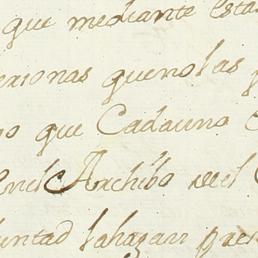 que mediante esta
ersonas quenolas p
o que Cadauno
enel Archibo del C
luntad lahagan pre